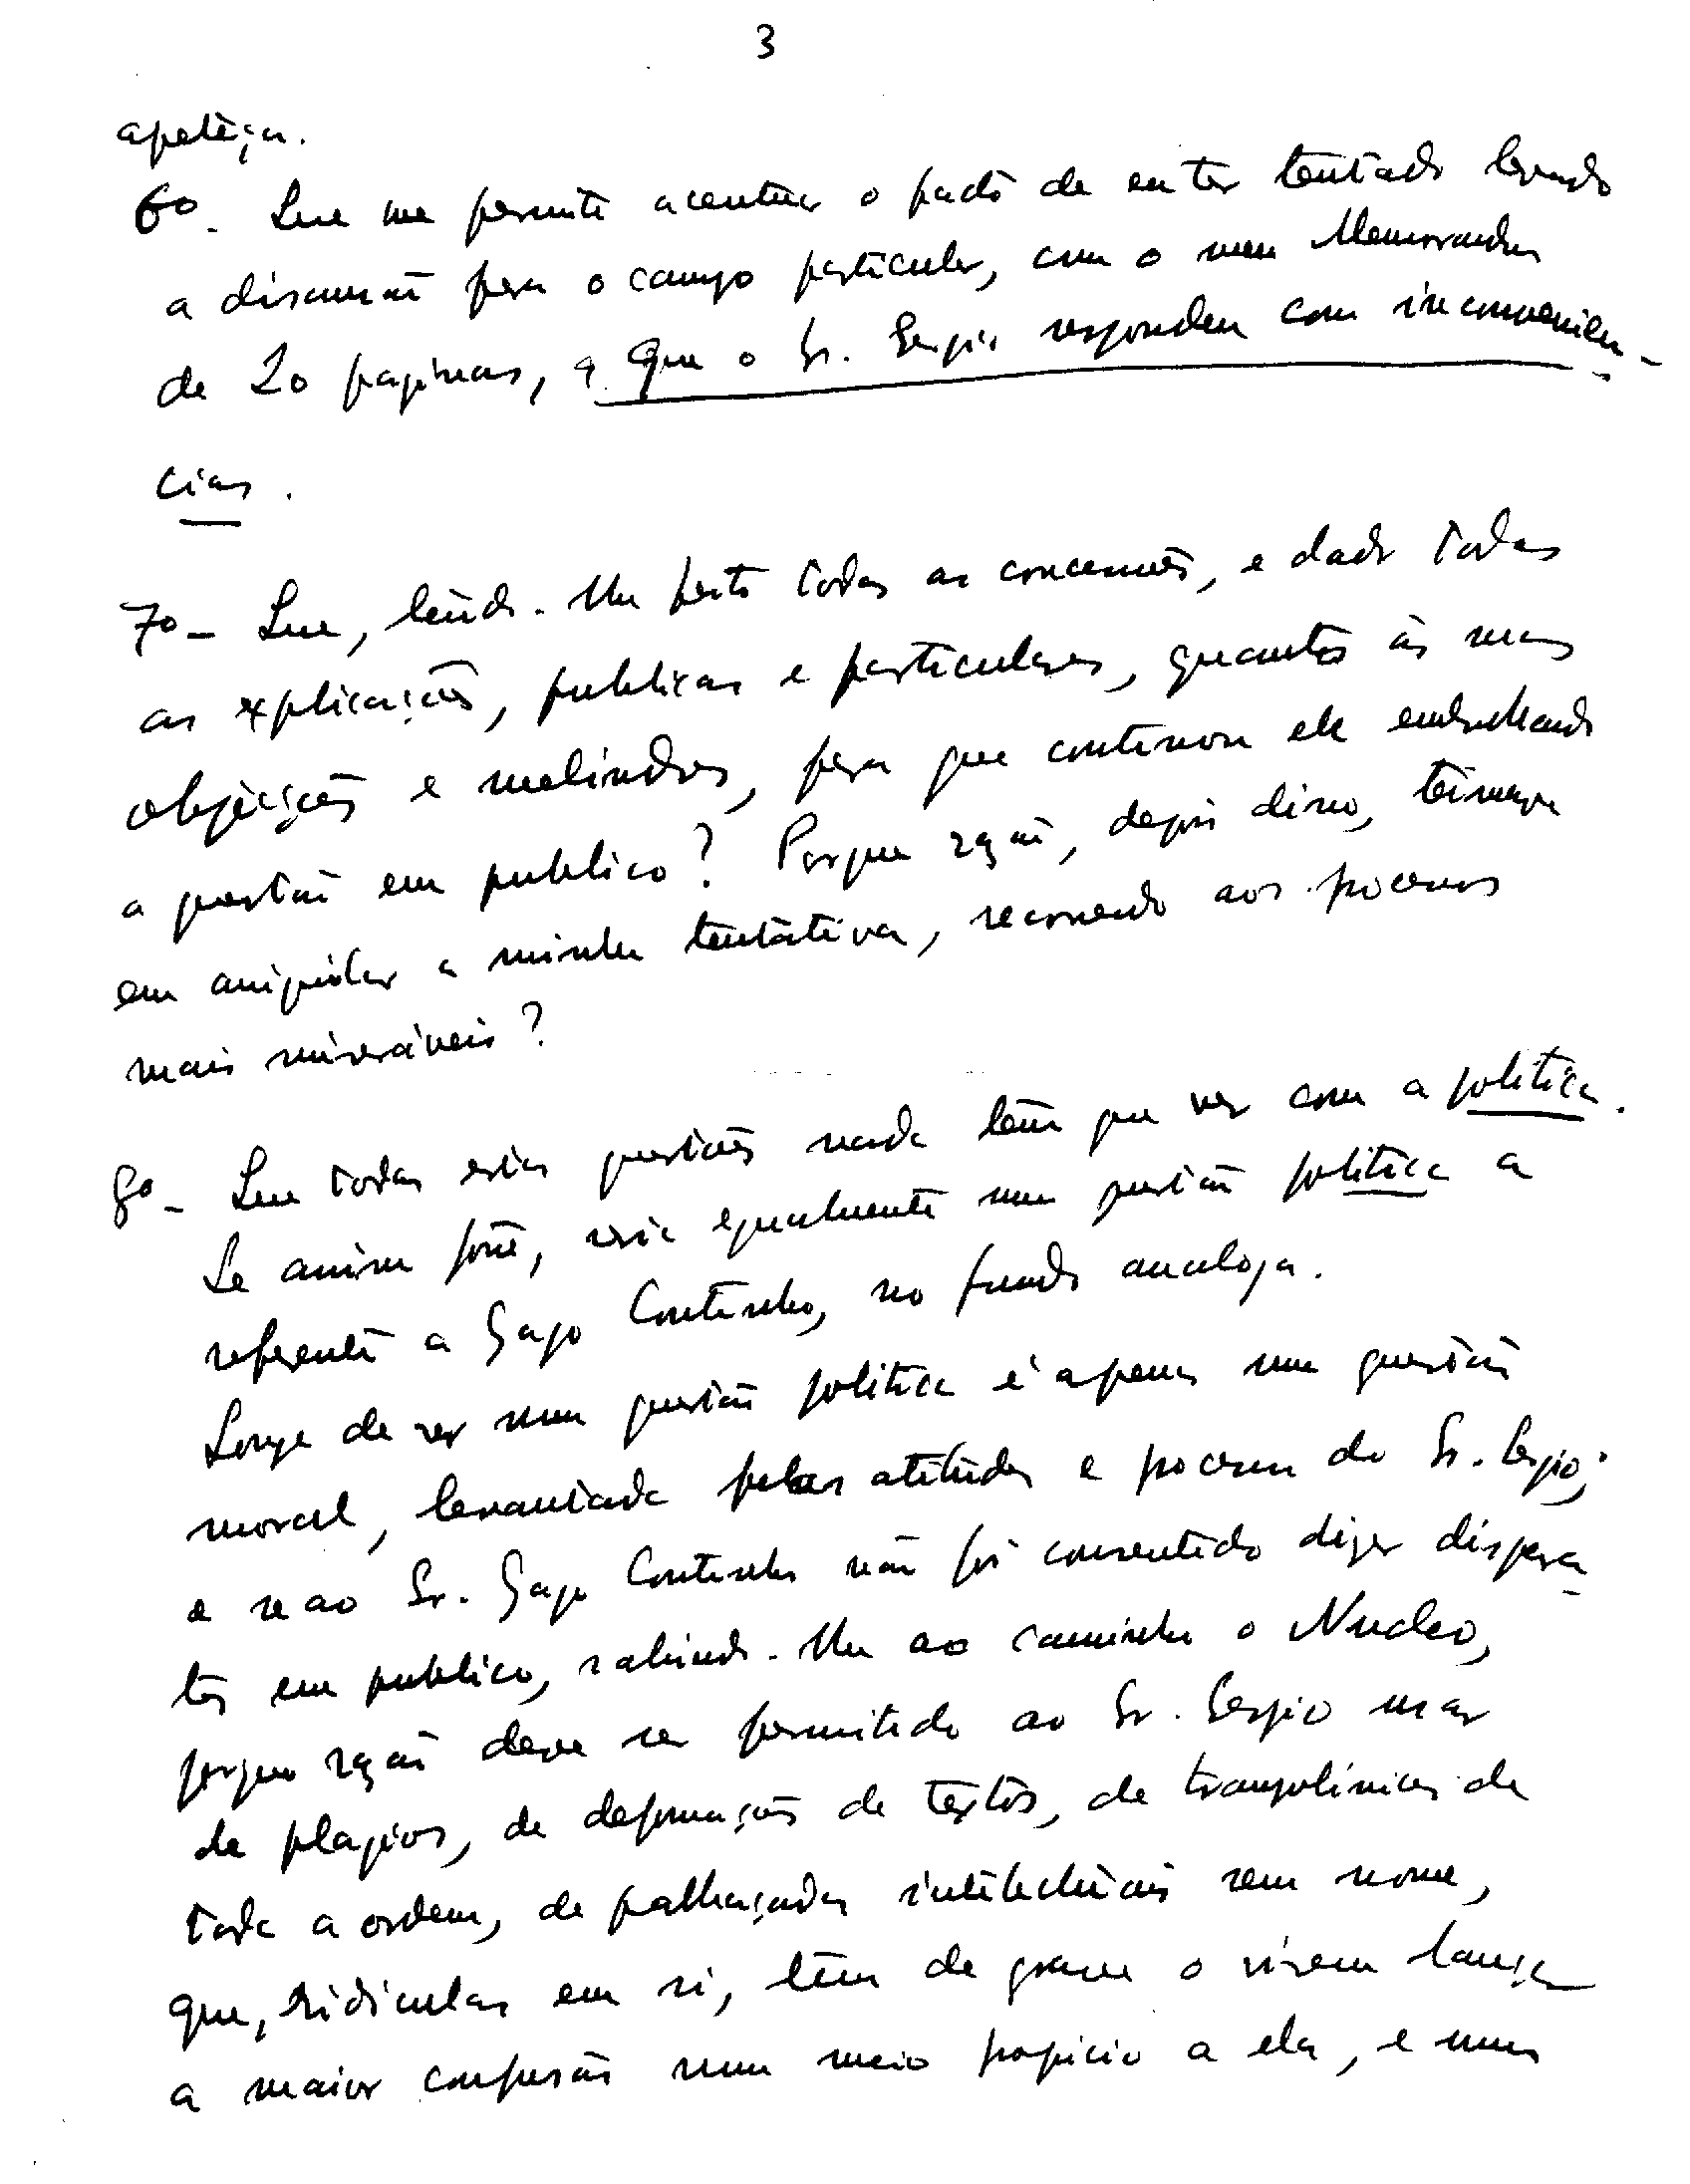 3
apetêça.
6º - Que me permite acentuar o facto de eu ter tentado levando
a discussão para o campo particular, com o meu Memorandum
de 20 paginas, a que o Sr. Sergio respondeu com inconvenien-
cias.
7º - Que, tendo-lhe feito todas as concessões, e dado todas
as explicações, publicas e particulares, quanto às suas
objecções e melindres, para que continuou ele embrulhando
a questão em publico? Porque razão, depois disso, teimava
em aniquilar a minha tentativa, recorrendo aos processos
mais miseráveis?
8º - Que todas estas questões nada têm que ver com a politica.
Se assim fôsse, seria egualmente uma questão politica a
referente a Gago Coutinho, no fundo analoga.
Longe de ser uma questão politica é apenas uma questão
moral, levantada pelas atitudes e processos do Sr. Sergio;
e se ao Sr. Gago Coutinho não foi consentido dizer dispara-
tes em publico, saindo-lhe ao caminho o Nucleo,
porque razão deve ser permitido ao Sr. Sergio usar
de plagios, de deformações de textos, de trampolinices de
toda a ordem, de palhaçadas intelectuais sem nome,
que, ridiculas em si, têm de grave o virem lançar
a maior confusão num meio propicio a ela, e num